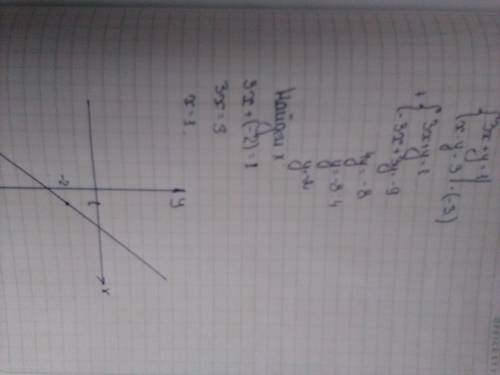 {3x+y=1
{x-y=3 |·(-3)
+{3x+y=1
{-3x+3y=-9
4y=-8
y=-8:4
y=-2
Найдем x
3x+(-2)=1
3x=3
x=1
y
1
x
-2